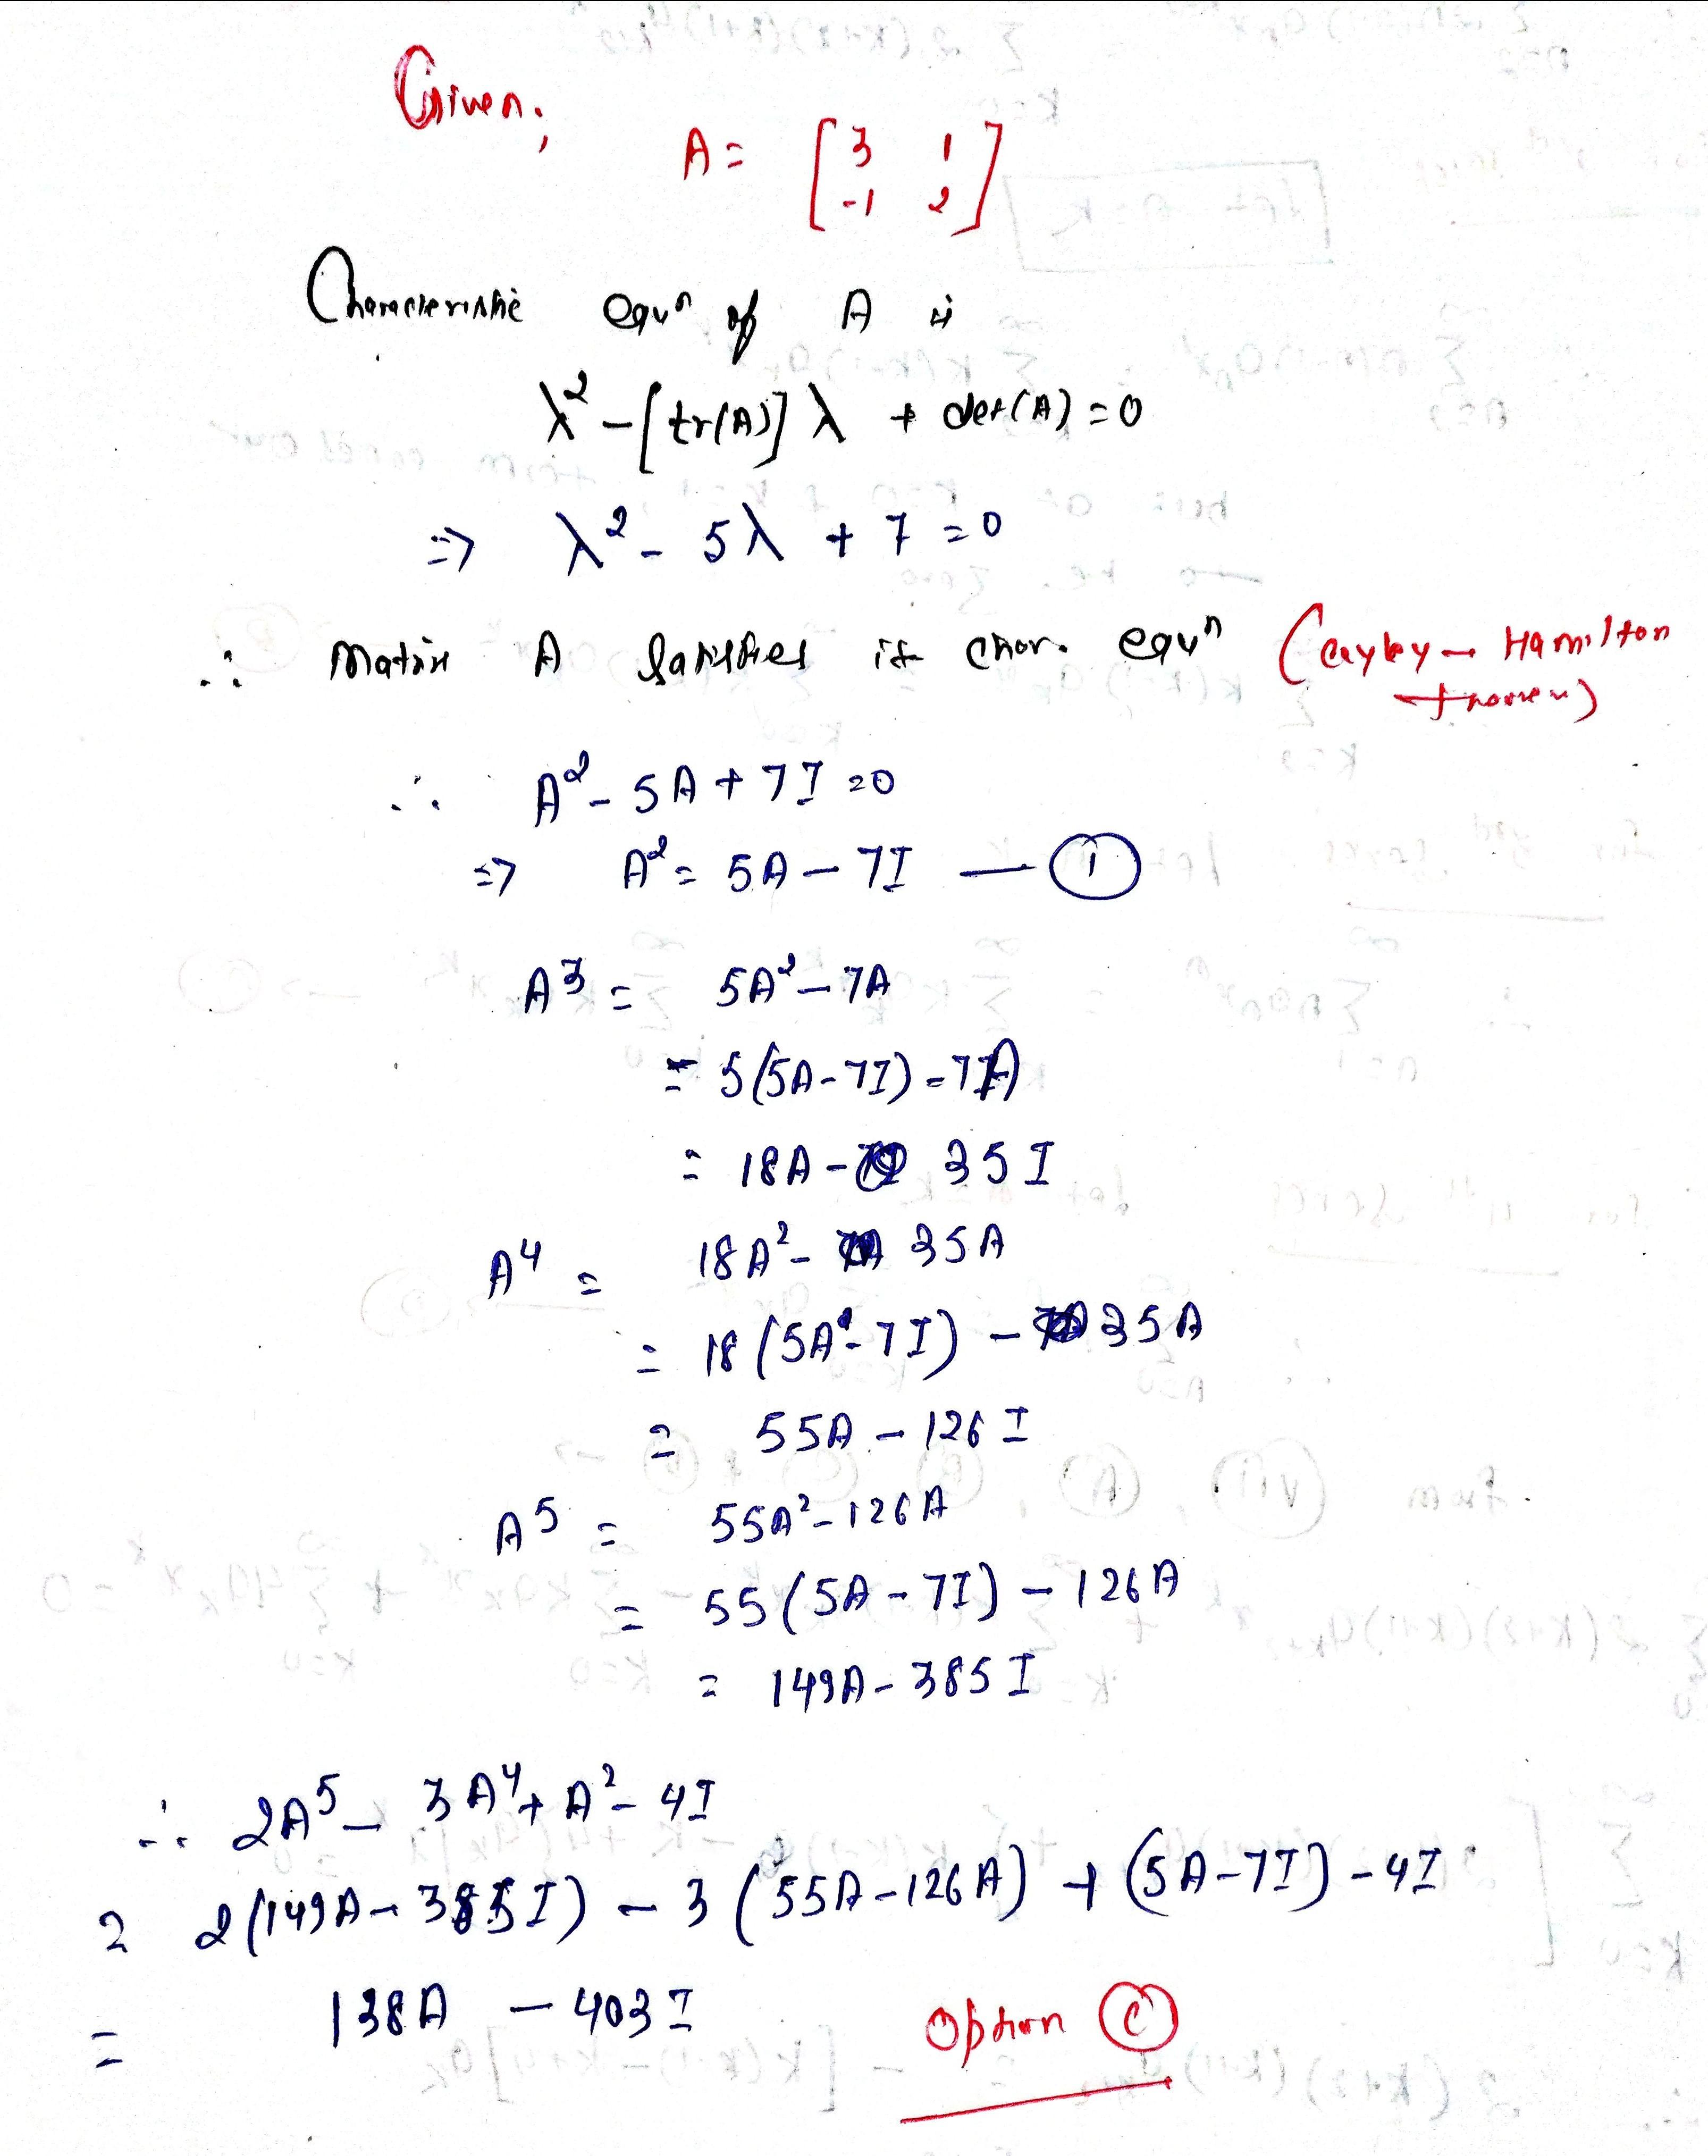 Given;
A = [ 3 1
-1 2 ]
Characteristic equⁿ of A is
λ² - [tr(A)] λ + det(A) = 0
=> λ² - 5λ + 7 = 0
∴ Matrix A satisfies it char. equⁿ (Cayley - Hamilton theorem)
∴ A² - 5A + 7I = 0
=> A² = 5A - 7I — ①
A³ = 5A² - 7A
= 5(5A - 7I) - 7A
= 18A - 35I
A⁴ = 18A² - 35A
= 18(5A - 7I) - 35A
= 55A - 126I
A⁵ = 55A² - 126A
= 55(5A - 7I) - 126A
= 149A - 385I
∴ 2A⁵ - 3A⁴ + A² - 4I
= 2(149A - 385I) - 3(55A - 126A) + (5A - 7I) - 4I
= 138A - 403I
Option (C)